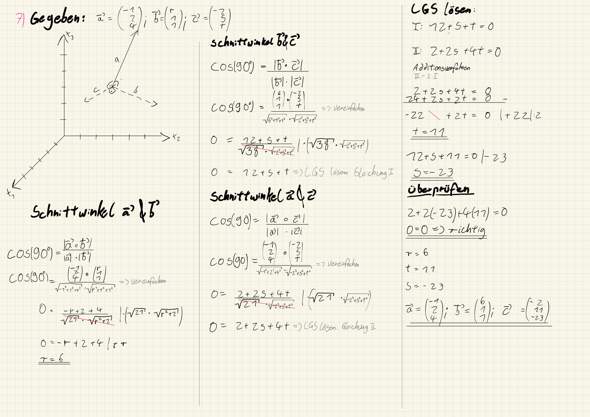 7) Gegeben: a⃗ = (-1 2 4); b⃗ = (r 1 1); c⃗ = (-2 s t)
x₃
a
c
b
x₂
x₁
Schnittwinkel a⃗ & b⃗
cos(90°) = |a⃗ ∘ b⃗| / |a⃗| · |b⃗|
cos(90°) = (-1 2 4) ∘ (r 1 1) => vereinfachen
0 = -r+2+4 / √21 · √r²+2 | · (√21 · √r²+2)
0 = -r + 2 + 4 | +r
r = 6
Schnittwinkel b⃗ & c⃗
cos(90°) = |b⃗ ∘ c⃗| / |b⃗| · |c⃗|
cos(90°) = (6 1 1) ∘ (-2 s t) => vereinfachen
0 = 12+s+t / √38 | · (√38
0 = 12+s+t => LGS lösen Gleichung I
Schnittwinkel a⃗ & c⃗
cos(90) = |a⃗ ∘ c⃗| / |a⃗| · |c⃗|
cos(90) = (-1 2 4) ∘ (-2 s t) => vereinfachen
0 = 2+2s+4t / √21 | · (√21
0 = 2+2s+4t => LGS lösen Gleichung II
LGS lösen:
I: 12+s+t = 0
II: 2+2s+4t = 0
Additionsverfahren
II - 2·I
2+2s+4t = 0
24+2s+2t = 0 -
-22 \ +2t = 0 |+22 |:2
t = 11
12+s+11 = 0 |-23
s = -23
Überprüfen
2+2(-23)+4(11) = 0
0=0 => richtig
r = 6
t = 11
s = -23
a⃗ = (-1 2 4); b⃗ = (6 1 1); c⃗ = (-2 11 -23)